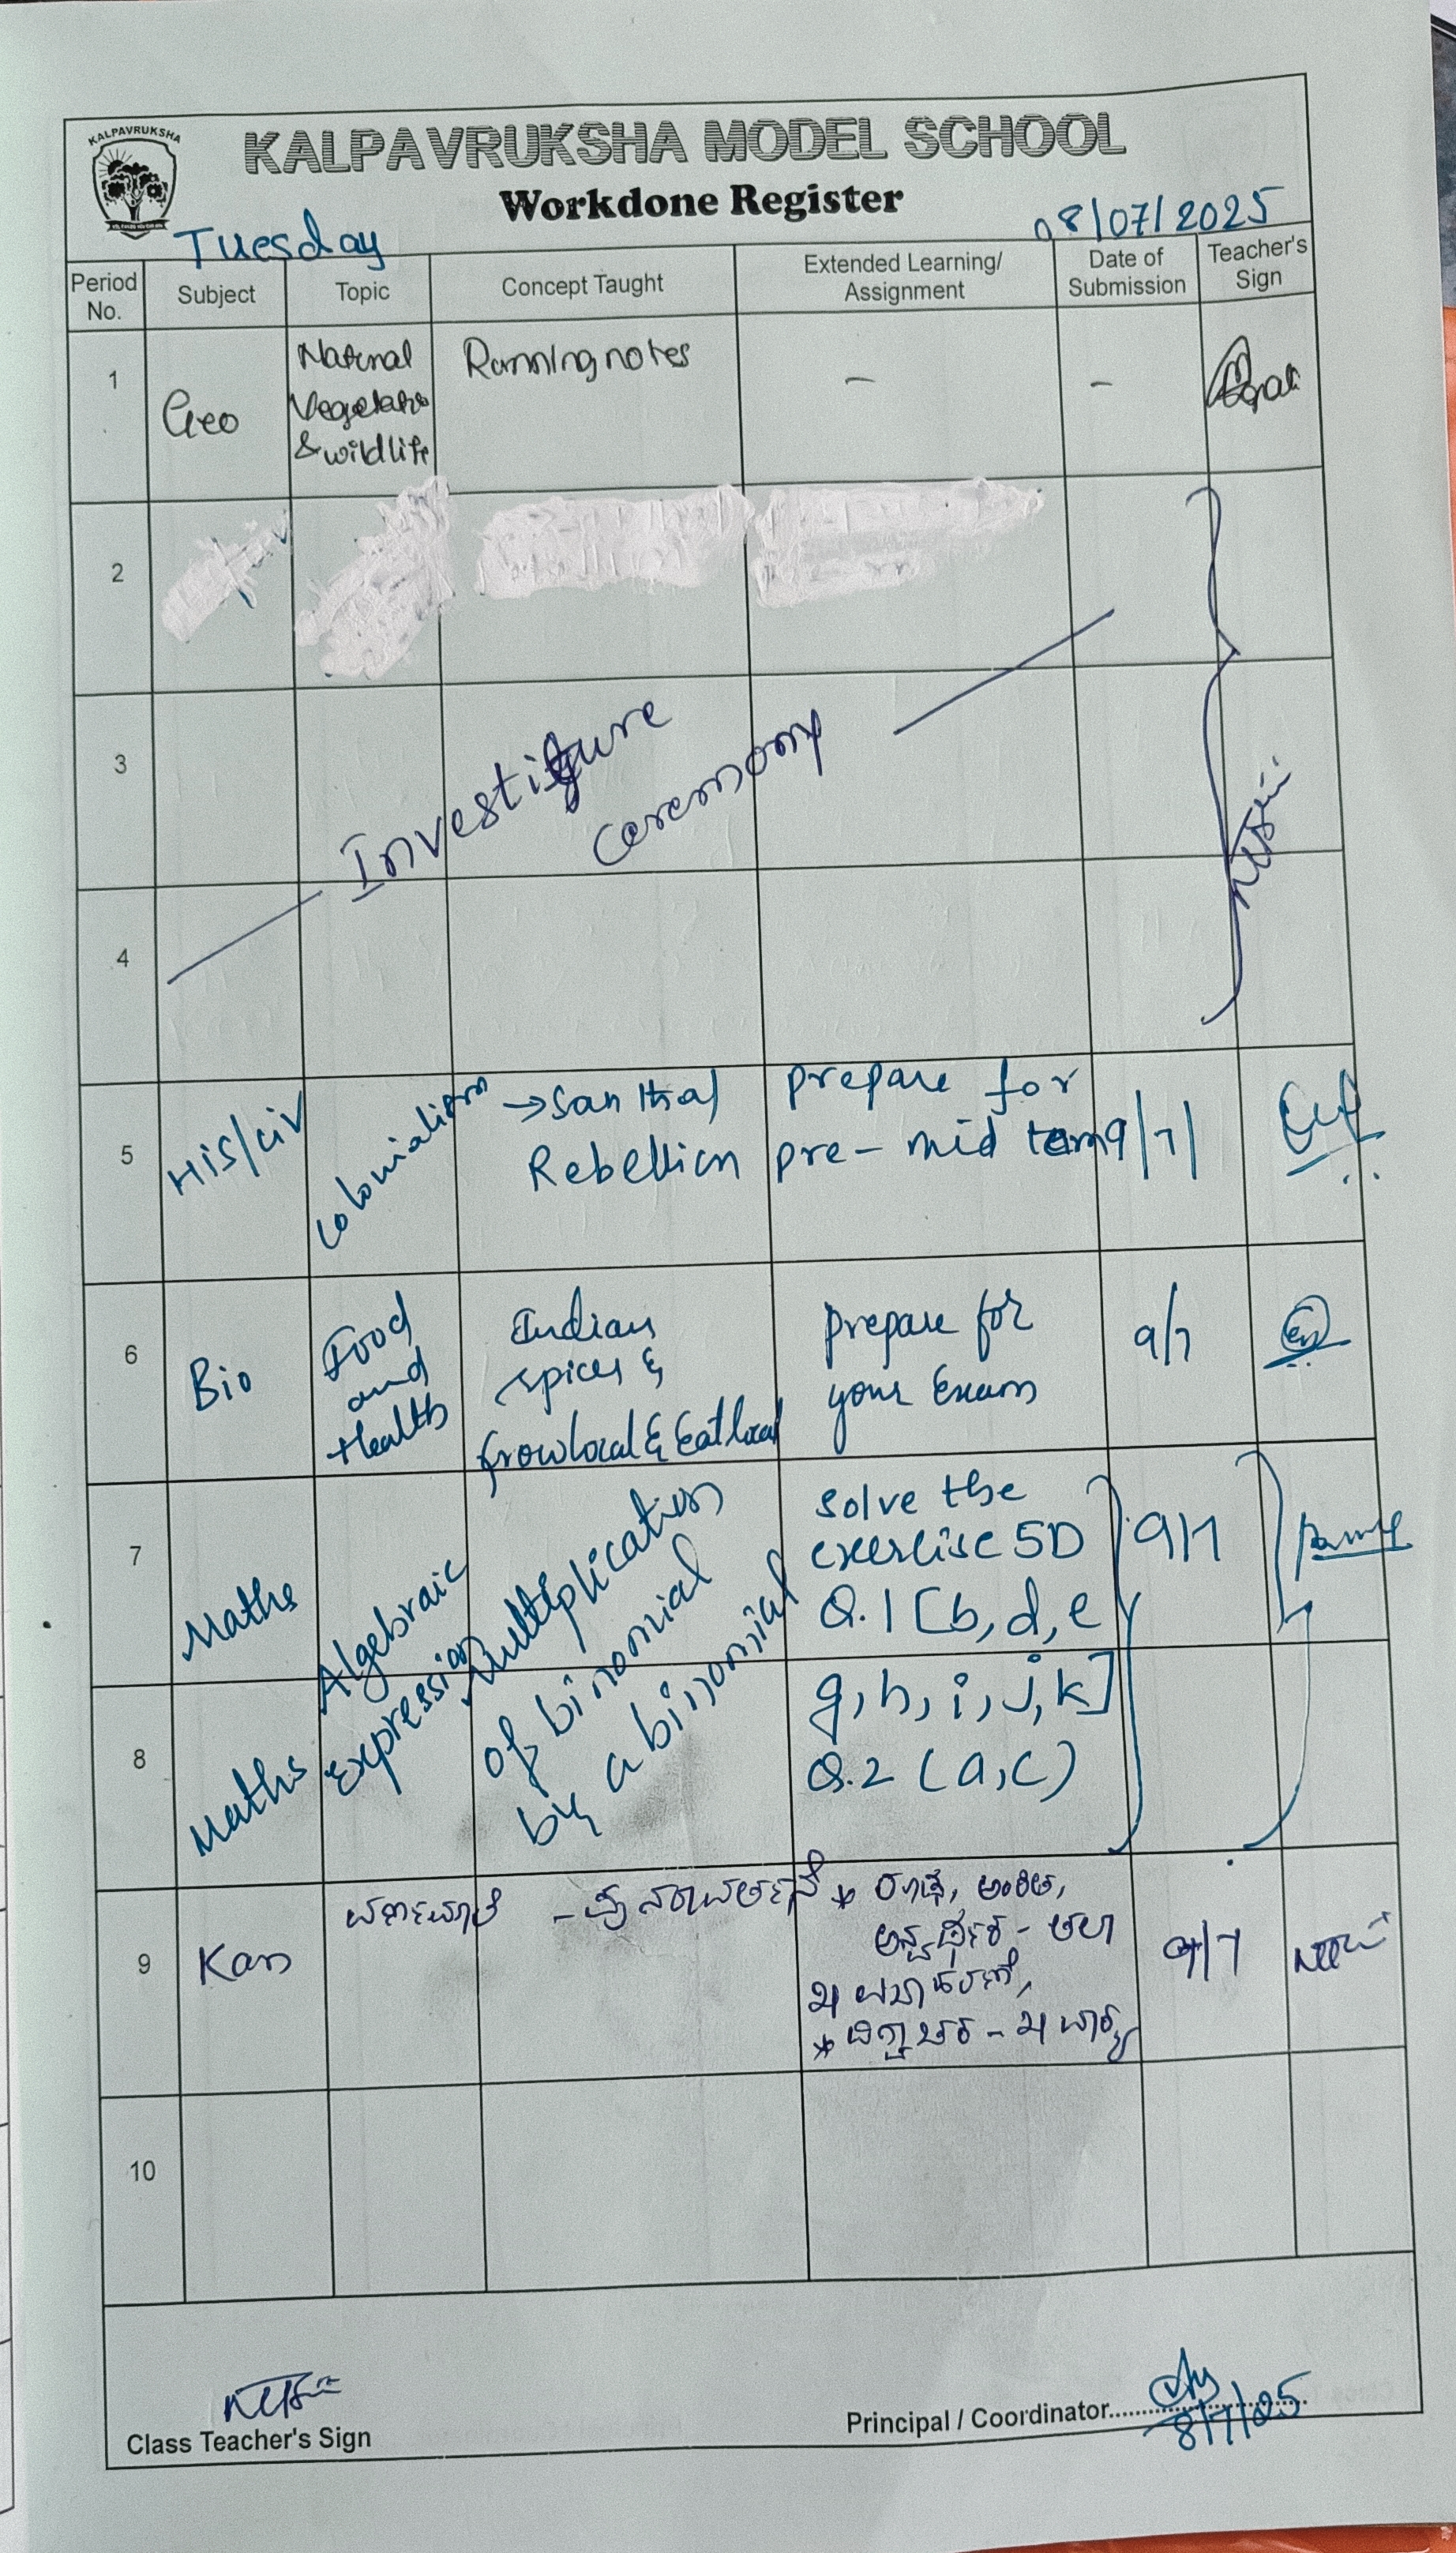 KALPAVRUKSHA
KALPAVRUKSHA MODEL SCHOOL
Workdone Register
Tuesday
08/07/2025
Period No.
Subject
Topic
Concept Taught
Extended Learning/
Assignment
Date of
Submission
Teacher's
Sign
1
Geo
Natural
Vegetation
& wildlife
Running notes
–
–
2
3
4
Investiture
Ceremony
5
His/civ
Colonialism
→ Santhal
Rebellion
prepare for
pre-mid term
9/7/
6
Bio
Food
and
Health
Indian
spices &
Grow local & Eat local
prepare for
your Exam
9/7
7
Maths
Algebraic
expression
Multiplication
of binomial
by a binomial
solve the
exercise 5D
Q.1 [b, d, e
9/7
8
Maths
g, h, i, j, k]
Q.2 (a, c)
9
Kan
9/7
10
Class Teacher's Sign
Principal / Coordinator
8/7/25